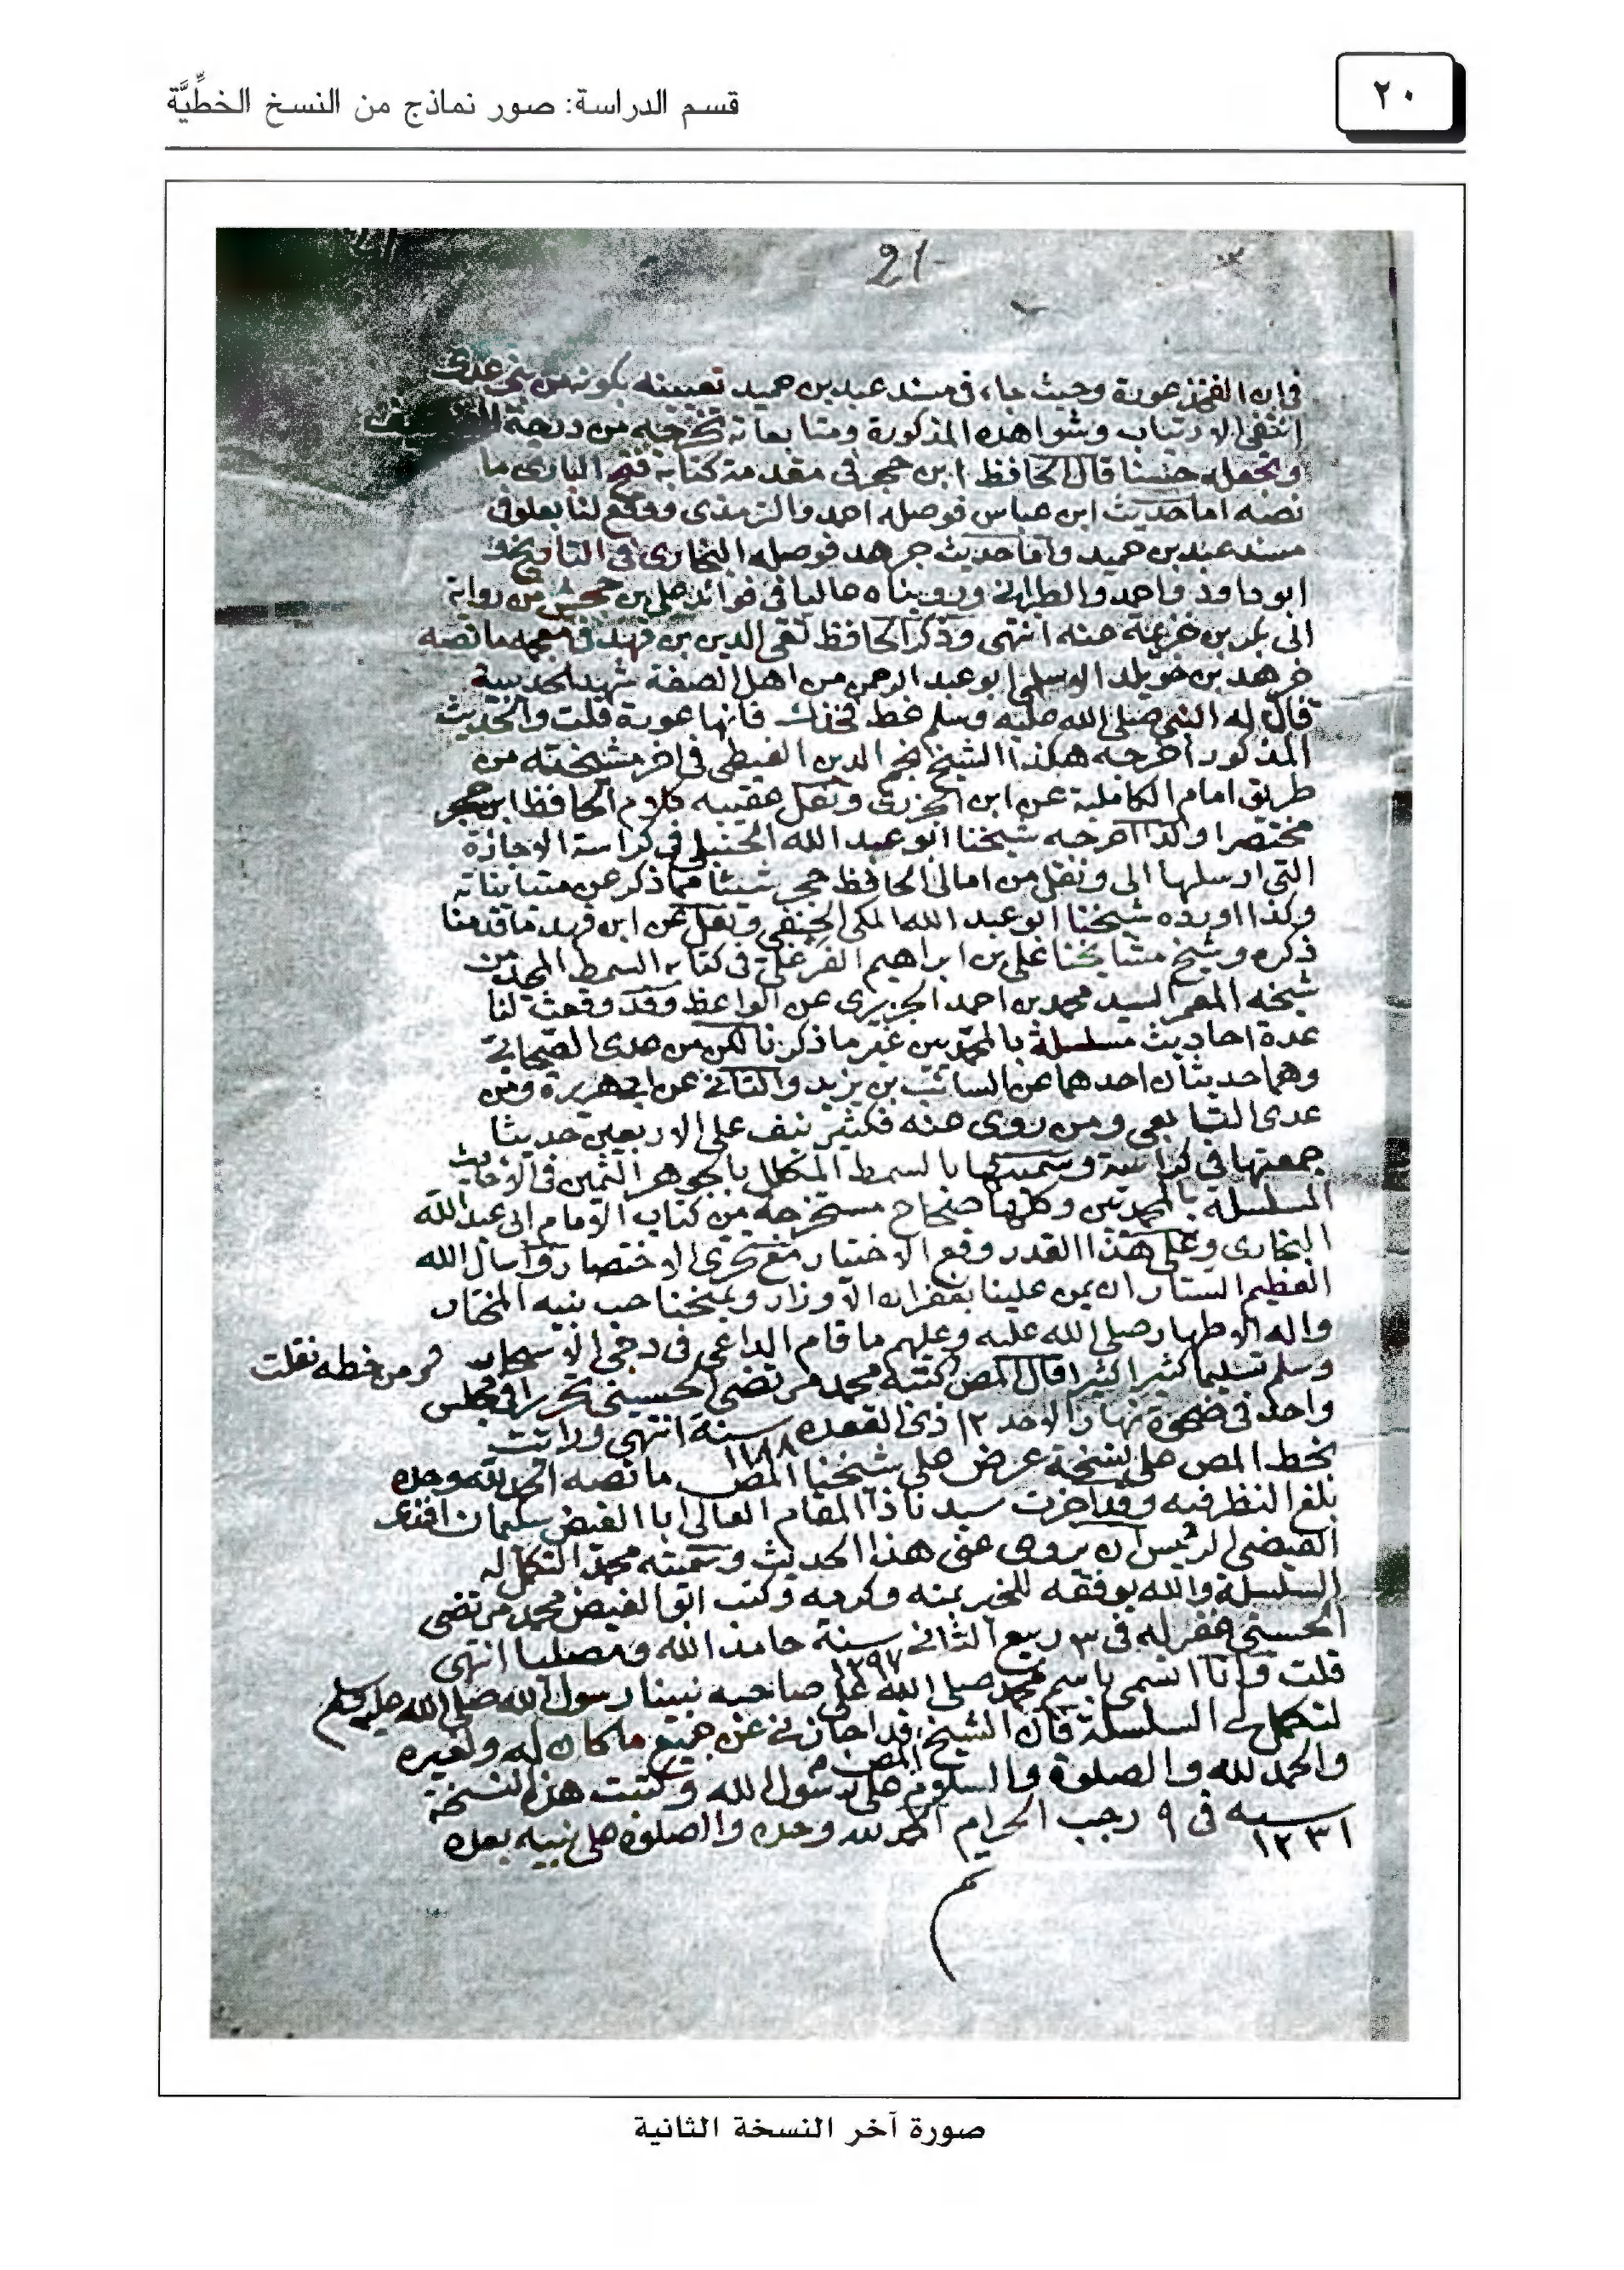 ٢٠
قسم الدراسة: صور نماذج من النسخ الخطِّيَّة
21
في ان الفخذ عورة وحيث جاء في مسند عبد بن حميد تعيينه بكونه من بني عدي
انتفى الارتياب وشواهده المذكورة ومتابعاته تخرجه من درجة
وتجعله حسنا قال الحافظ ابن حجر في مقدمة كتابه فتح الباري ما
نصه اما حديث ابن عباس فوصله احمد والترمذي ووقع لنا بعلو في
مسند عبد بن حميد واما حديث جرهد فوصله البخاري في التاريخ و
ابو داود واحمد والطبراني ورويناه عاليا في فوائد علي بن حجر من رواية
ابي بكر بن خزيمة عنه انتهى وذكر الحافظ تقي الدين بن فهد في معجمه ما نصه
جرهد بن خويلد الاسلمي ابو عبد الرحمن من اهل الصفة شهد الحديبية
قال له النبي صلى الله عليه وسلم غط فخذك فانها عورة قلت والحديث
المذكور اخرجه هكذا الشيخ نجم الدين الغيطي في اخر مشيخته من
طريق امام الكاملية عن ابن الجزري ونقل عقيبه كلام الحافظ ابن حجر
مختصرا وكذا اخرجه شيخنا ابو عبد الله الحنبلي في كراسة الاجازة
التي ارسلها الي ونقل من امالي الحافظ حجر شيئا مما ذكر عن متبايناته
وكذا اورده شيخنا ابو عبد الله المكي الحنفي ونقل عن ابن فهد ما قدمنا
ذكره وشيخ مشايخنا علي بن ابراهيم في كتابه السمط المجد من
شيخه المعمر السيد محمد بن احمد الجزيري عن الواعظ وقد وقعت لنا
عدة احاديث مسلسلة بالمحمدين غير ما ذكرنا لكن من عدى الصحابي
وهما حديثان احدهما عن السائب بن يزيد والثاني عن ابي هريرة ومن
عدى التابعي ومن روى عنه فكثير نيف على الاربعين حديثا
جمعتها في كراسة وسميتها بالسمط المكلل بالجوهر الثمين في الاحاديث
المسلسلة بالمحمدين وكلها صحاح مستخرجة من كتاب الامام ابي عبد الله
البخاري وعلى هذا القدر وقع الاختيار مع تحري الاختصار واسال الله
العظيم الستار ان يمن علينا بغفران الاوزار ويمنحنا حب نبيه المختار
واله الاطهار صلى الله عليه وعليهم ما قام الداعي في دجى الاسحار
وسلم تسليما كثيرا كثيرا قال المص كتبه محمد مرتضى الحسيني تحريرا في مجلس
ثم من خطه نقلت
واحد في ضحوة نهار الاحد ١٢ ذي القعده سنة ١١٨٨ انتهى ورايت
بخط المص على نسخة عرض على شيخنا المص ما نصه الحمد لله وحده
بلغ النظر فيه وقد اجزت سيدنا ذا المقام العالي ابا الفيض سليمان افندي
الفيضي الرئيس ان يروي عني هذا الحديث وسميته محمدا لتكمل له
السلسلة والله يوفقه للخير بمنه وكرمه وكتب ابو الفيض محمد مرتضى
الحسيني غفر له في ٣ ربيع الثاني سنة حامدا لله ومصليا انتهى
قلت وانا اتسمى باسم محمد صلى الله على صاحبه نبينا رسول الله صلى الله عليه وسلم
لتكمل لي السلسلة فان الشيخ المص قد اجازني عن جميع ما كان له ولغيره
والحمد لله والصلوة والسلام على رسول الله وكتبت هذه النسخة
سنه ١٢٣١ في ٩ رجب الحرام الحمد لله وحده والصلوة على نبيه بعده
م
صورة آخر النسخة الثانية